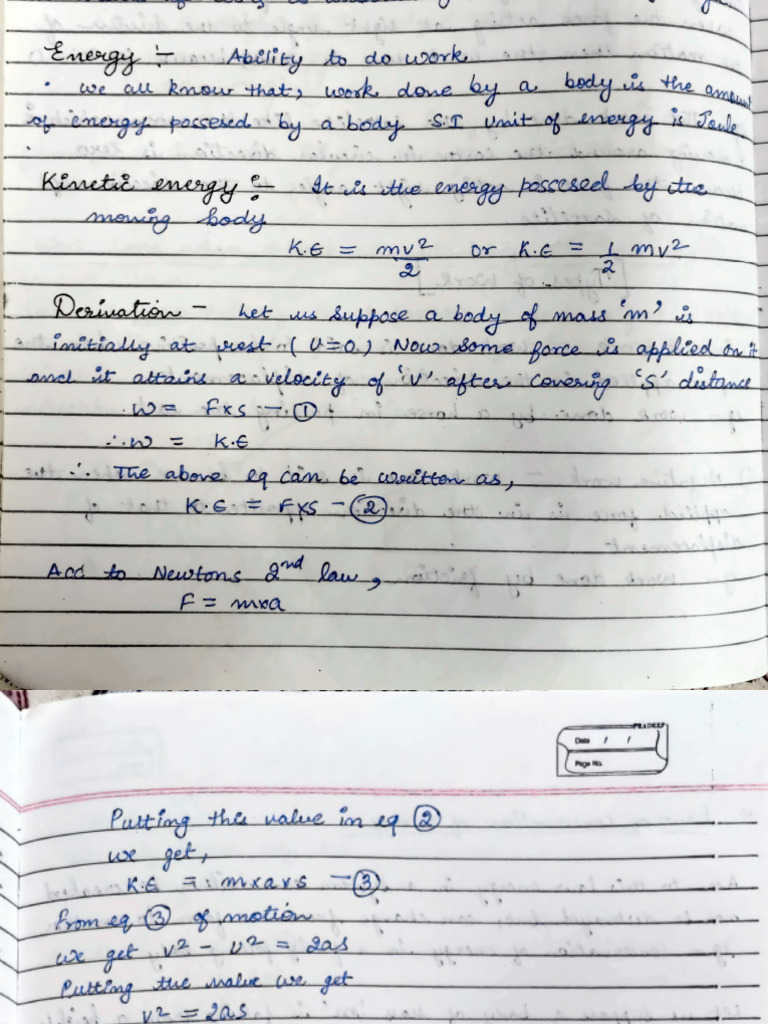 Energy :- Ability to do work
• we all know that, work done by a body is the amount
of energy possesed by a body S.I unit of energy is Joule
Kinetic energy :- It is the energy possesed by the
moving body
K.E = mv²/2 or K.E = 1/2 mv²
Derivation - Let us suppose a body of mass 'm' is
initially at rest (U=0) Now some force is applied on it
and it attains a velocity of 'V' after covering 'S' distance
W = F×S - ①
∴ W = K.E
∴ The above eq can be written as,
K.E = F×S - ②
Acc to Newtons 2nd law,
F = m×a
PRADEEP
Date / /
Page No.
Putting this value in eq ②
we get,
K.E = m×a×s - ③
from eq ③ of motion
we get v² - u² = 2as
Putting the value we get
v² = 2as